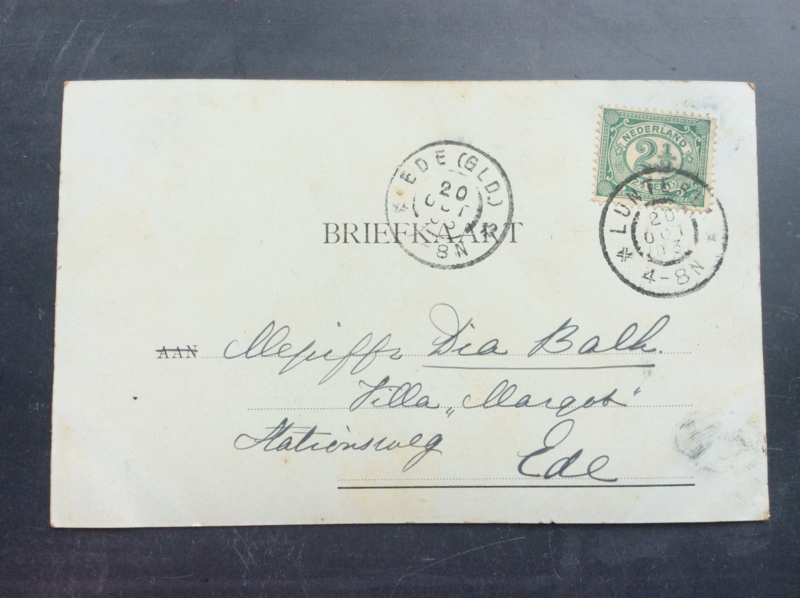 NEDERLAND
2½
LUNTEREN
20
OCT
03
4-8N
EDE (GLD.)
20
OCT
8N
BRIEFKAART
AAN Mejuffr Dia Balk.
Villa „Margot"
Stationsweg
Ede